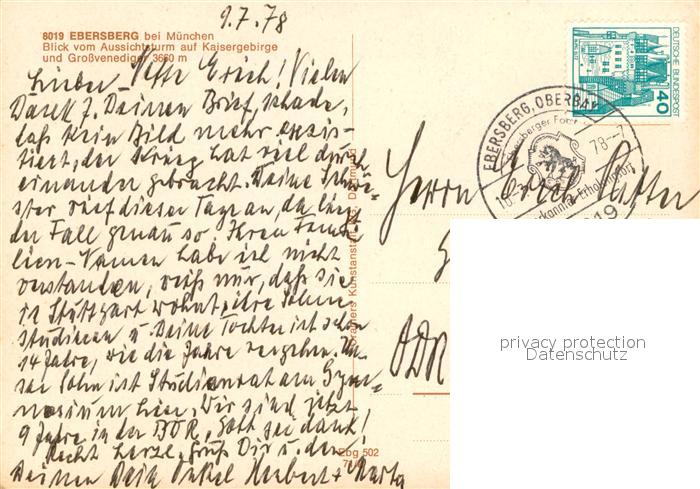 9.7.78
8019 EBERSBERG bei München
Blick vom Aussichtsturm auf Kaisergebirge
und Großvenediger 3660 m
Lieber Neffe Erich! Vielen
Dank f. Deinen Brief, schade,
daß kein Bild mehr exsis-
tiert, der Krieg hat viel durch
einander gebracht. Deine Schwe-
ster rief dieser Tage an, da lag
der Fall genau so. Ihren Fami-
lien-Namen habe ich nicht
verstanden, weiß nur, daß sie
in Stuttgart wohnt, ihre Söhne
studieren u Deine Tochter ist schon
14 Jahre, wie die Jahre vergehen. Un-
ser Sohn ist Studienrat am Gym-
nasium hier. Wir sind jetzt
9 Jahre in der BDR, Gott sei dank!
Recht herzl. Grüß Dir u. den
Deinen Onkel Herbert + Marta
DEUTSCHE BUNDESPOST
40
EBERSBERG, OBERBAY
Ebersberger Forst
78--7
anerkannter Erholungsort
8019
Herrn Erich
DDR
Kramers Kunstanstalt Dortmund
Ebg 502
privacy protection
Datenschutz